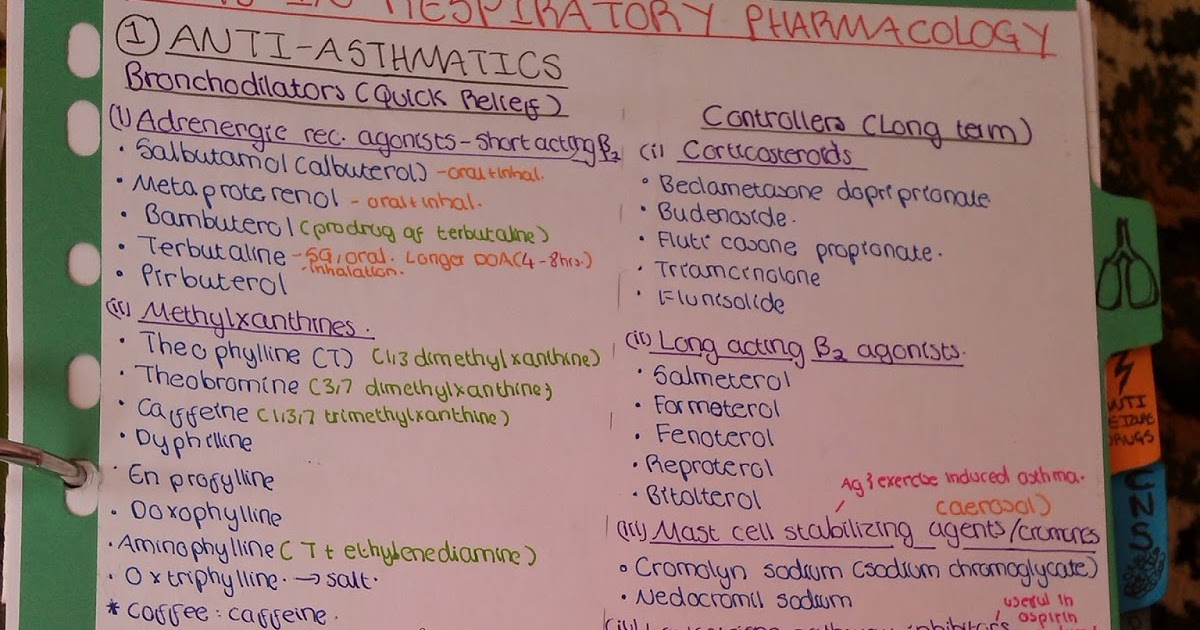 IN RESPIRATORY PHARMACOLOGY
① ANTI-ASTHMATICS
Bronchodilators (Quick Relief)
(i) Adrenergic rec. agonists - short acting β2
• Salbutamol (albuterol) - oral + inhal.
• Metaproterenol - oral + inhal.
• Bambuterol (prodrug of terbutaline)
• Terbutaline - SQ, oral. Longer DOA (4-8hrs.)
- inhalation.
• Pirbuterol
(ii) Methylxanthines.
• Theophylline (T) (1,3 dimethylxanthine)
• Theobromine (3,7 dimethylxanthine)
• Caffeine (1,3,7 trimethylxanthine)
• Dyphilline
• Enprofylline
• Doxophylline
• Aminophylline (T + ethylenediamine)
• Oxtriphylline. → salt.
* Coffee: caffeine.
Controllers (Long term)
(i) Corticosteroids
• Beclametasone dopriprionate
• Budenoside.
• Fluticasone propionate.
• Triamcinolone
• Flunisolide
(ii) Long acting β2 agonists.
• Salmeterol
• Formeterol
• Fenoterol
• Reproterol
• Bitolterol
Ag & exercise induced asthma.
(aerosol)
(iii) Mast cell stabilizing agents/cromones
• Cromolyn sodium (sodium chromoglycate)
• Nedocromil sodium
useful in
aspirin
(iv) pathway inhibitors
ANTI
DRUGS
CNS